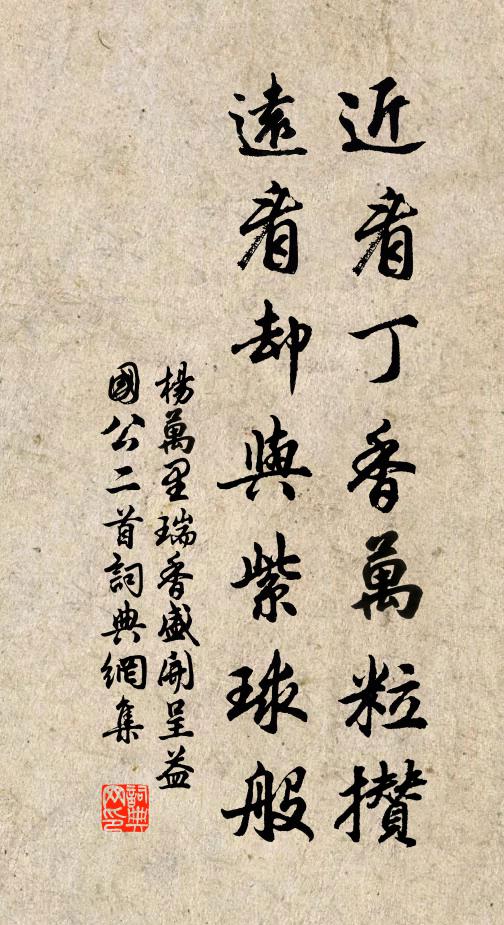 近看丁香萬粒攢
遠看却與紫球般
楊萬里瑞香盛開呈益
國公二首詞典網集
詞典網印